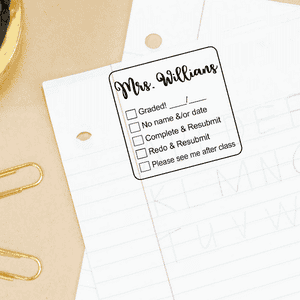 Mrs. Willians
Graded! ___/___
No name &/or date
Complete & Resubmit
Redo & Resubmit
Please see me after class